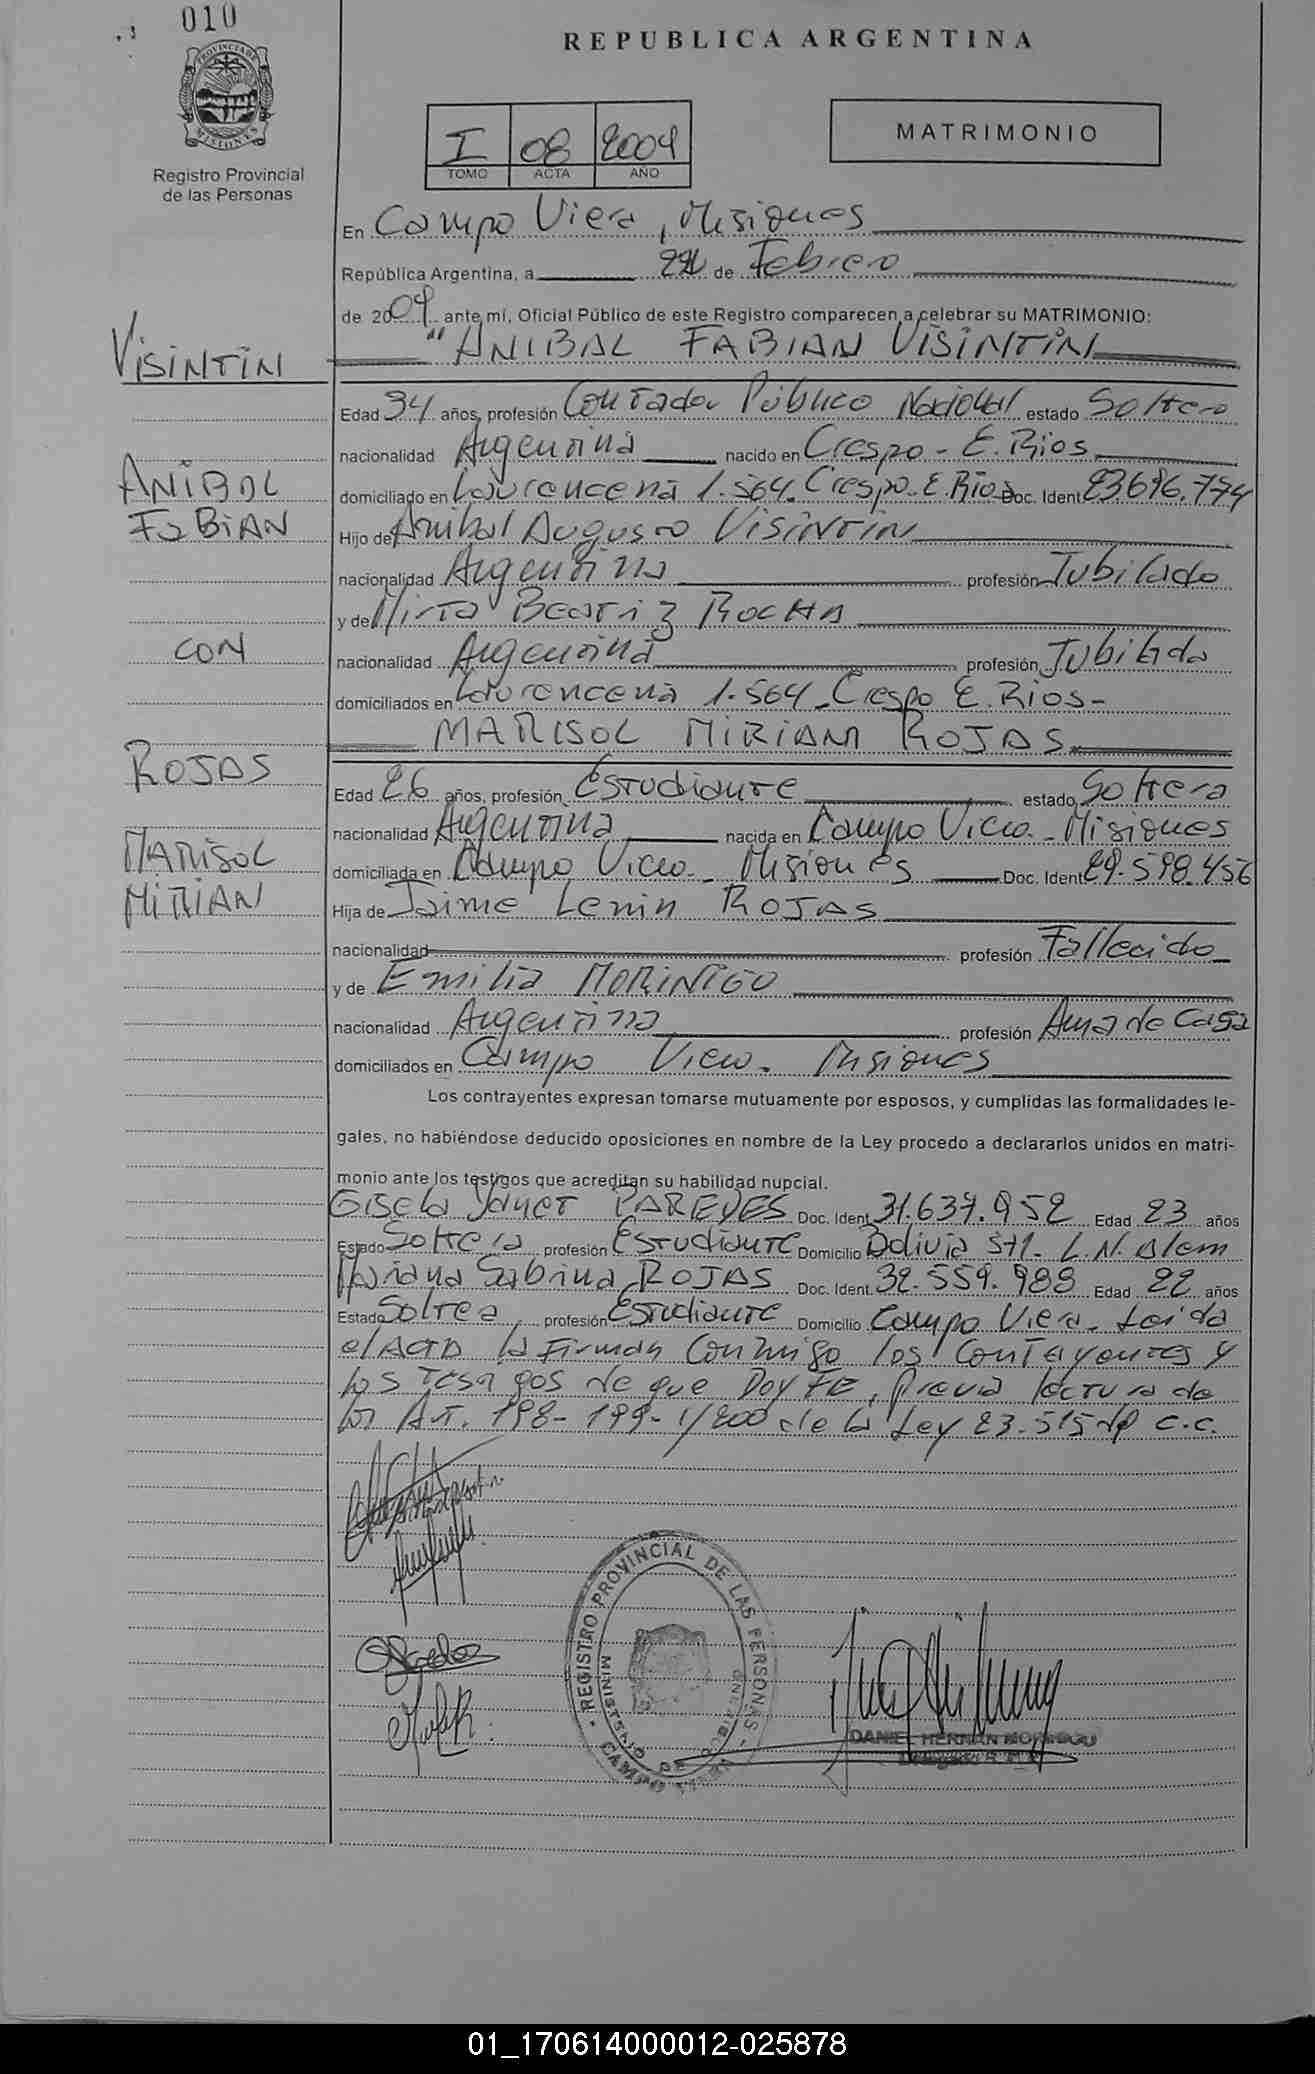 010
PROVINCIA DE
MISIONES
Registro Provincial
de las Personas
REPUBLICA ARGENTINA
I 08 2004
TOMO ACTA AÑO
MATRIMONIO
En Campo Viera, Misiones
República Argentina, a de Febrero
de 2004 ante mí, Oficial Público de este Registro comparecen a celebrar su MATRIMONIO:
"ANIBAL FABIAN VISINTIN
VISINTIN
Edad 34 años, profesión Contador Público Nacional estado Soltero
nacionalidad Argentina nacido en Crespo - E. Rios
ANIBAL
domiciliado en Laurencena 1.564. Crespo - E. Rios Doc. Ident 23696.774
FABIAN
Hijo de Anibal Augusto VISINTIN
nacionalidad Argentina profesión Jubilado
y de Mirta Beatriz ROCHA
CON
nacionalidad Argentina profesión Jubilada
domiciliados en Laurencena 1.564 - Crespo E. Rios -
MARISOL MIRIAM ROJAS
ROJAS
Edad 26 años, profesión Estudiante estado Soltera
nacionalidad Argentina nacida en Campo Viera - Misiones
MARISOL
domiciliada en Campo Viera - Misiones Doc. Ident 29.598.456
MIRIAN
Hija de Jaime Lenin ROJAS
nacionalidad profesión Fallecido
y de Emilia MORINIGO
nacionalidad Argentina profesión Ama de Casa
domiciliados en Campo Viera - Misiones
Los contrayentes expresan tomarse mutuamente por esposos, y cumplidas las formalidades le-
gales, no habiéndose deducido oposiciones en nombre de la Ley procedo a declararlos unidos en matri-
monio ante los testigos que acreditan su habilidad nupcial.
Gisela Yanet PAREDES Doc. Ident 31.637.952 Edad 23 años
Estado Soltera profesión Estudiante Domicilio Bolivia 571 - L.N. Alem
Mariana Sabrina ROJAS Doc. Ident. 32.559.988 Edad 22 años
Estado Soltera, profesión Estudiante Domicilio Campo Viera - Leida
el Acta la Firman Conmigo los Contrayentes y
los Testigos de que Doy FE, Previa lectura de
los Art. 198 - 199 - y 200 de la Ley 23.515 del C.C.
- REGISTRO PROVINCIAL DE LAS PERSONAS -
MINISTERIO DE GOBIERNO
CAMPO VIERA
DANIEL HERNAN MORINIGO
Delegado
01_170614000012-025878